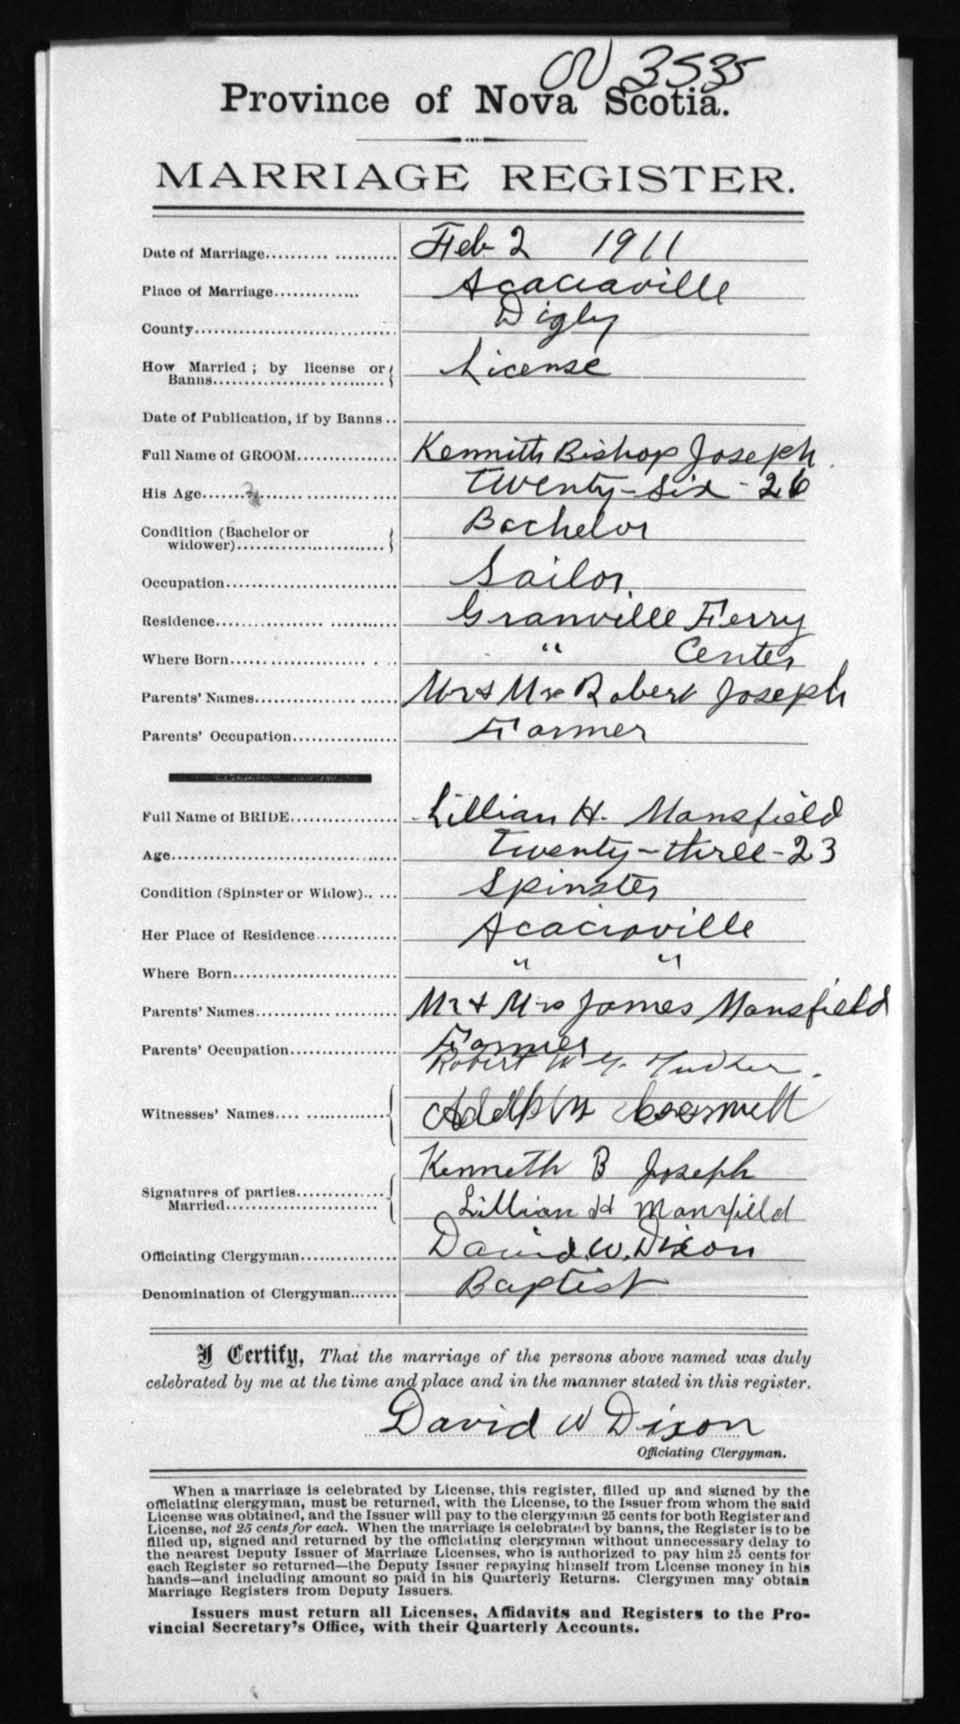 3535
Province of Nova Scotia.
MARRIAGE REGISTER.
Date of Marriage Feb 2 1911
Place of Marriage Acaciaville
County Digby
How Married ; by license or
Banns License
Date of Publication, if by Banns
Full Name of GROOM Kennith Bishop Joseph
His Age Twenty-six - 26
Condition (Bachelor or
widower) Bachelor
Occupation Sailor
Residence Granville Ferry
Where Born " Center
Parents' Names Mr & Mrs Robert Joseph
Parents' Occupation Farmer
Full Name of BRIDE Lillian H. Mansfield
Age Twenty-three-23
Condition (Spinster or Widow) Spinster
Her Place of Residence Acaciaville
Where Born " "
Parents' Names Mr & Mrs James Mansfield
Parents' Occupation Farmer
Robert W
Witnesses' Names
Kenneth B Joseph
Signatures of parties
Married Lillian H Mansfield
Officiating Clergyman David W. Dixon
Denomination of Clergyman Baptist
I Certify, That the marriage of the persons above named was duly
celebrated by me at the time and place and in the manner stated in this register.
David W Dixon
Officiating Clergyman.
When a marriage is celebrated by License, this register, filled up and signed by the
officiating clergyman, must be returned, with the License, to the Issuer from whom the said
License was obtained, and the Issuer will pay to the clergyman 25 cents for both Register and
License, not 25 cents for each. When the marriage is celebrated by banns, the Register is to be
filled up, signed and returned by the officiating clergyman without unnecessary delay to
the nearest Deputy Issuer of Marriage Licenses, who is authorized to pay him 25 cents for
each Register so returned—the Deputy Issuer repaying himself from License money in his
hands—and including amount so paid in his Quarterly Returns. Clergymen may obtain
Marriage Registers from Deputy Issuers.
Issuers must return all Licenses, Affidavits and Registers to the Pro-
vincial Secretary's Office, with their Quarterly Accounts.